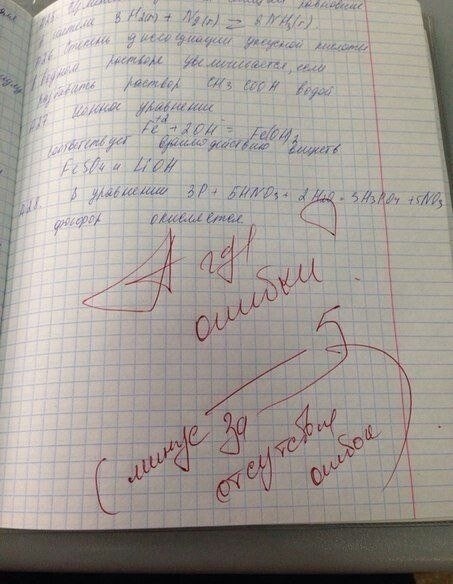 системе 3H2(г) + N2(г) ⇄ 2NH3(г)
Степень диссоциации уксусной кислоты
в водном растворе увеличивается, если
разбавить раствор CH3COOH водой
А27 Ионное уравнение
Fe+2 + 2OH- = Fe(OH)2
соответствует взаимодействию веществ
FeSO4 и LiOH
А28 В уравнении 3P + 5HNO3 + 2H2O = 3H3PO4 + 5NO
фосфор окисляется
А где
ошибки
5
(минус за
отсутствие
ошибок